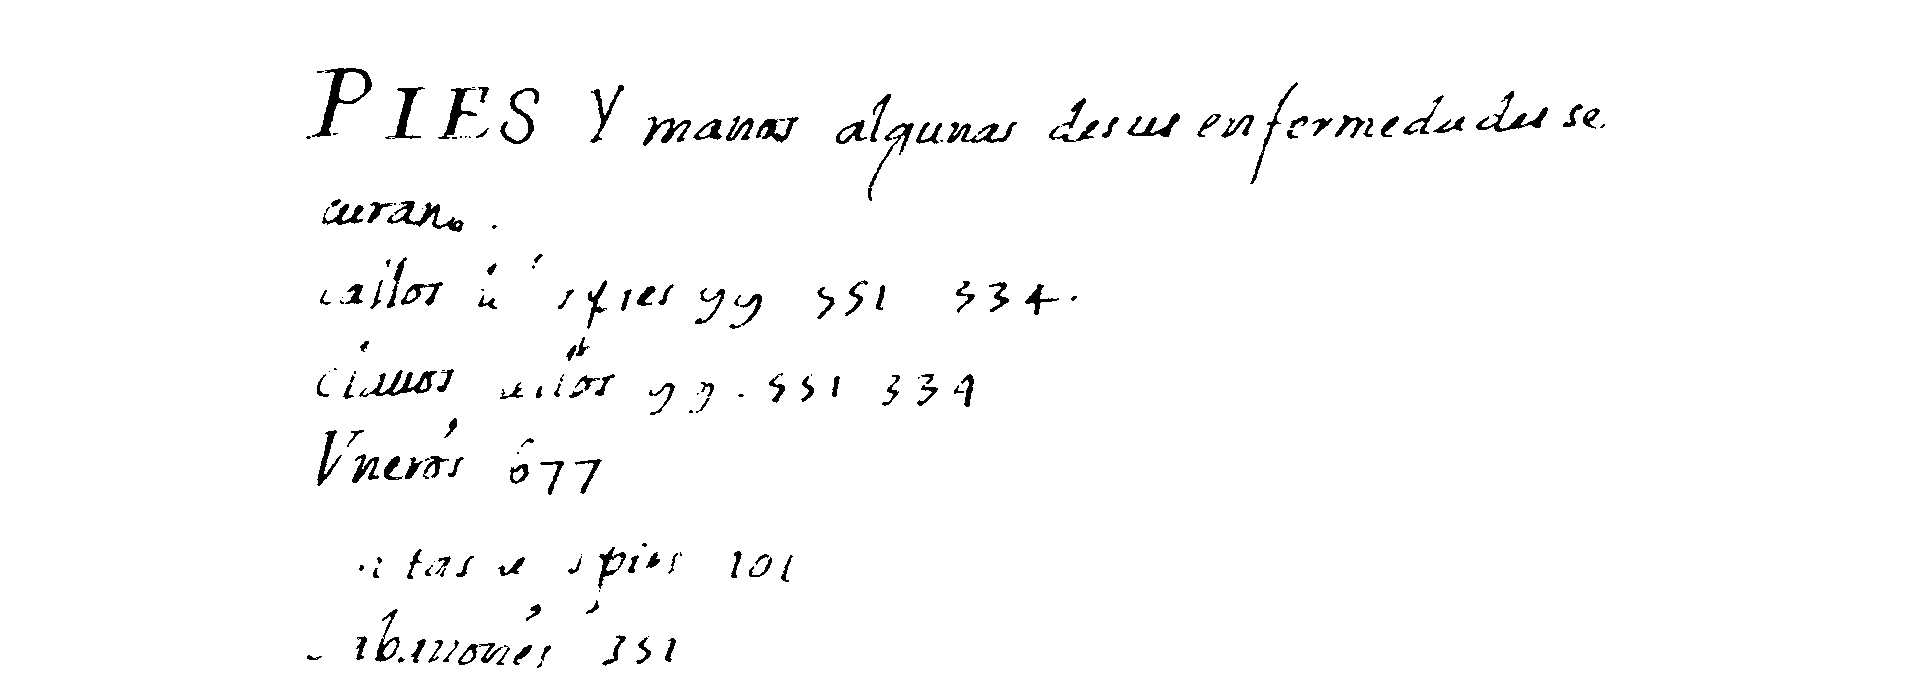 PIES Y manos algunas desus enfermedades se
curan.
callos pies yy 551 334.
clauos yy. 551 334
Vneros 677
pies 101
sabanones 351